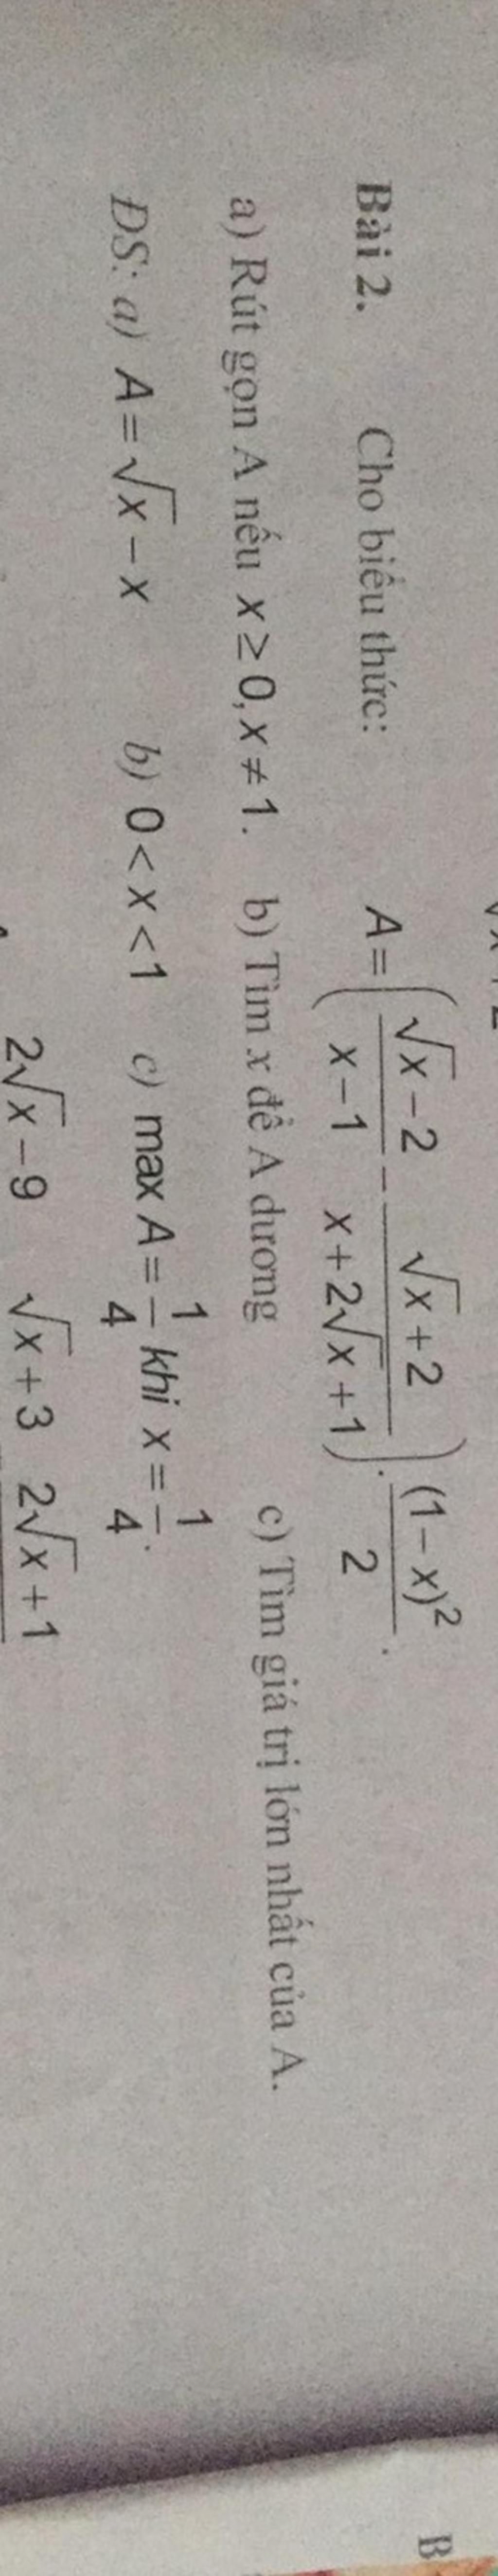 Bài 2. Cho biểu thức: A = ( (√x − 2)/(x − 1) − (√x + 2)/(x + 2√x + 1) ) . (1 − x)²/2 .
a) Rút gọn A nếu x ≥ 0, x ≠ 1. b) Tìm x để A dương c) Tìm giá trị lớn nhất của A.
ĐS: a) A = √x − x b) 0 < x < 1 c) max A = 1/4 khi x = 1/4.
2√x − 9 √x + 3 2√x + 1
B